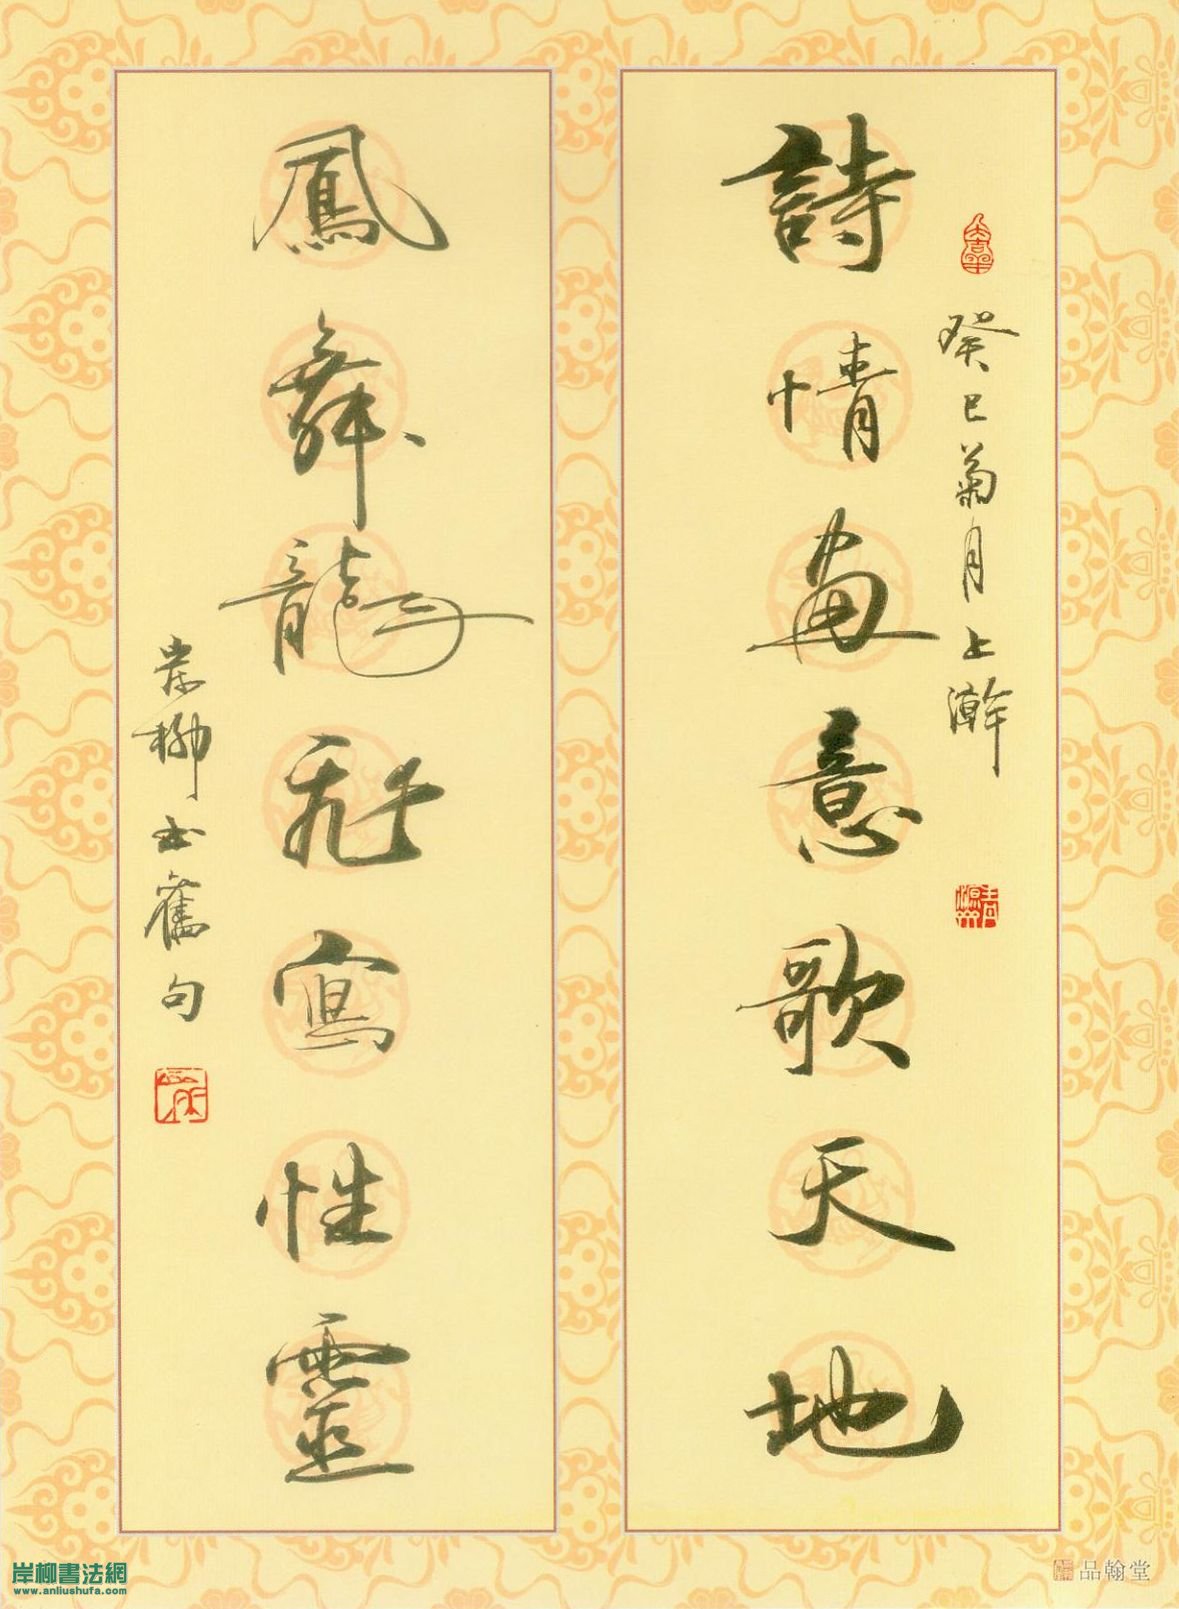 癸巳菊月上澣
詩情畫意歌天地
鳳舞龍飛寫性靈
岸柳书舊句
岸柳書法網
www.anliushufa.com
品翰堂